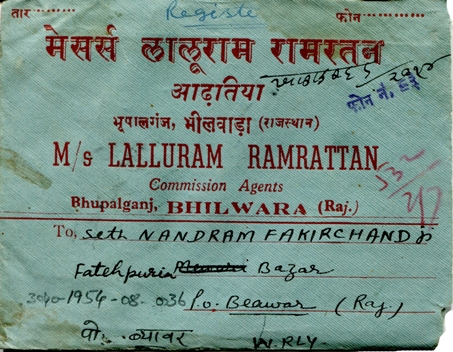 तार ········· Registe फोन ············
मेसर्स लालूराम रामरतन
आढ़तिया
फोन नं. ६३
भूपालगंज, भीलवाड़ा (राजस्थान)
M/s LALLURAM RAMRATTAN
Commission Agents
Bhupalganj, BHILWARA (Raj.)
To, Seth NANDRAM FAKIRCHANDji
Fatehpuria Bazar
3040-1954-08-036 P.o. Beawar (Raj)
पो. ब्यावर W.RLY.